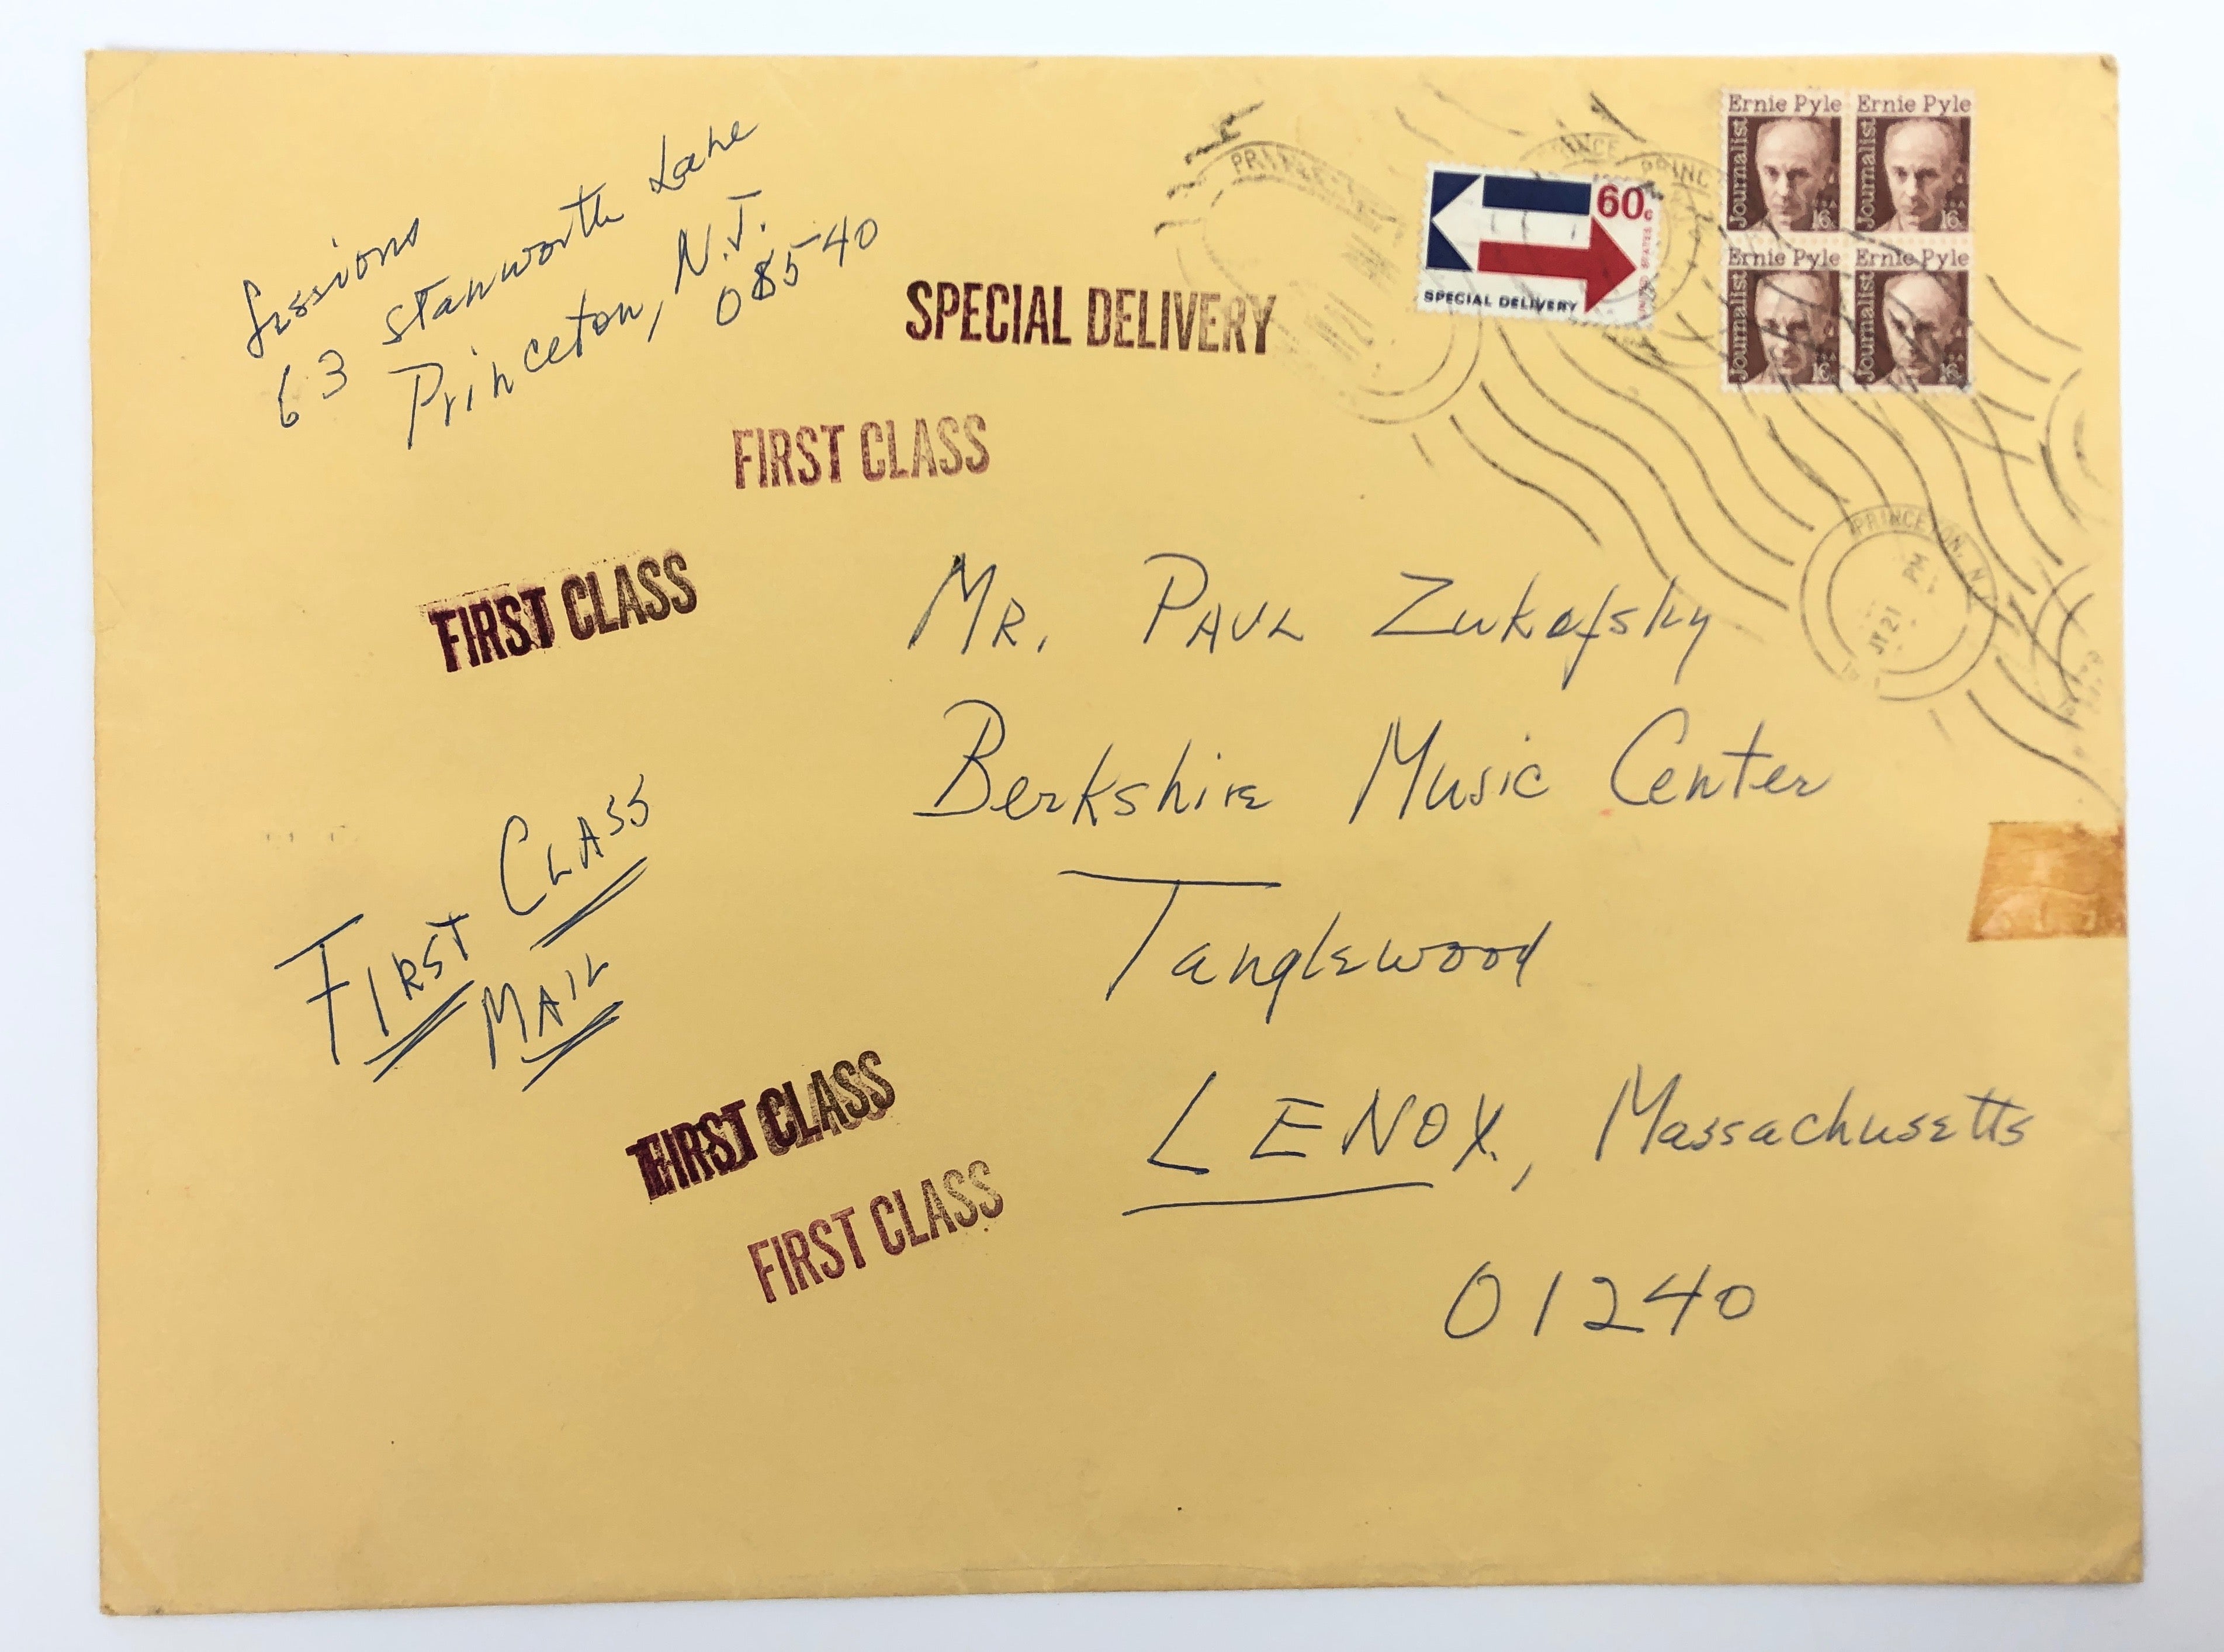 Sessions
63 Stanworth Lane
Princeton, N.J.
08540
SPECIAL DELIVERY
60c
UNITED STATES
SPECIAL DELIVERY
Ernie Pyle
Journalist
16c
Ernie Pyle
Journalist
16c
Ernie Pyle
Journalist
16c
Ernie Pyle
Journalist
16c
PRINCE
PRINC
PRINCETON, N
PM
21
FIRST CLASS
FIRST CLASS
MR. PAUL Zukofsky
Berkshire Music Center
Tanglewood
LENOX, Massachusetts
01240
FIRST CLASS
MAIL
FIRST CLASS
FIRST CLASS